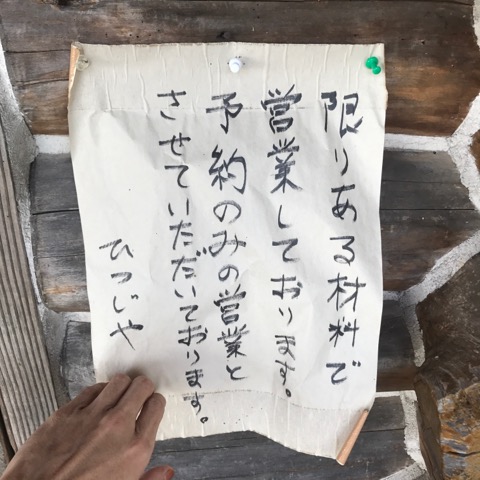 限りある材料で
営業しております。
予約のみの営業と
させていただいております。
ひつじや